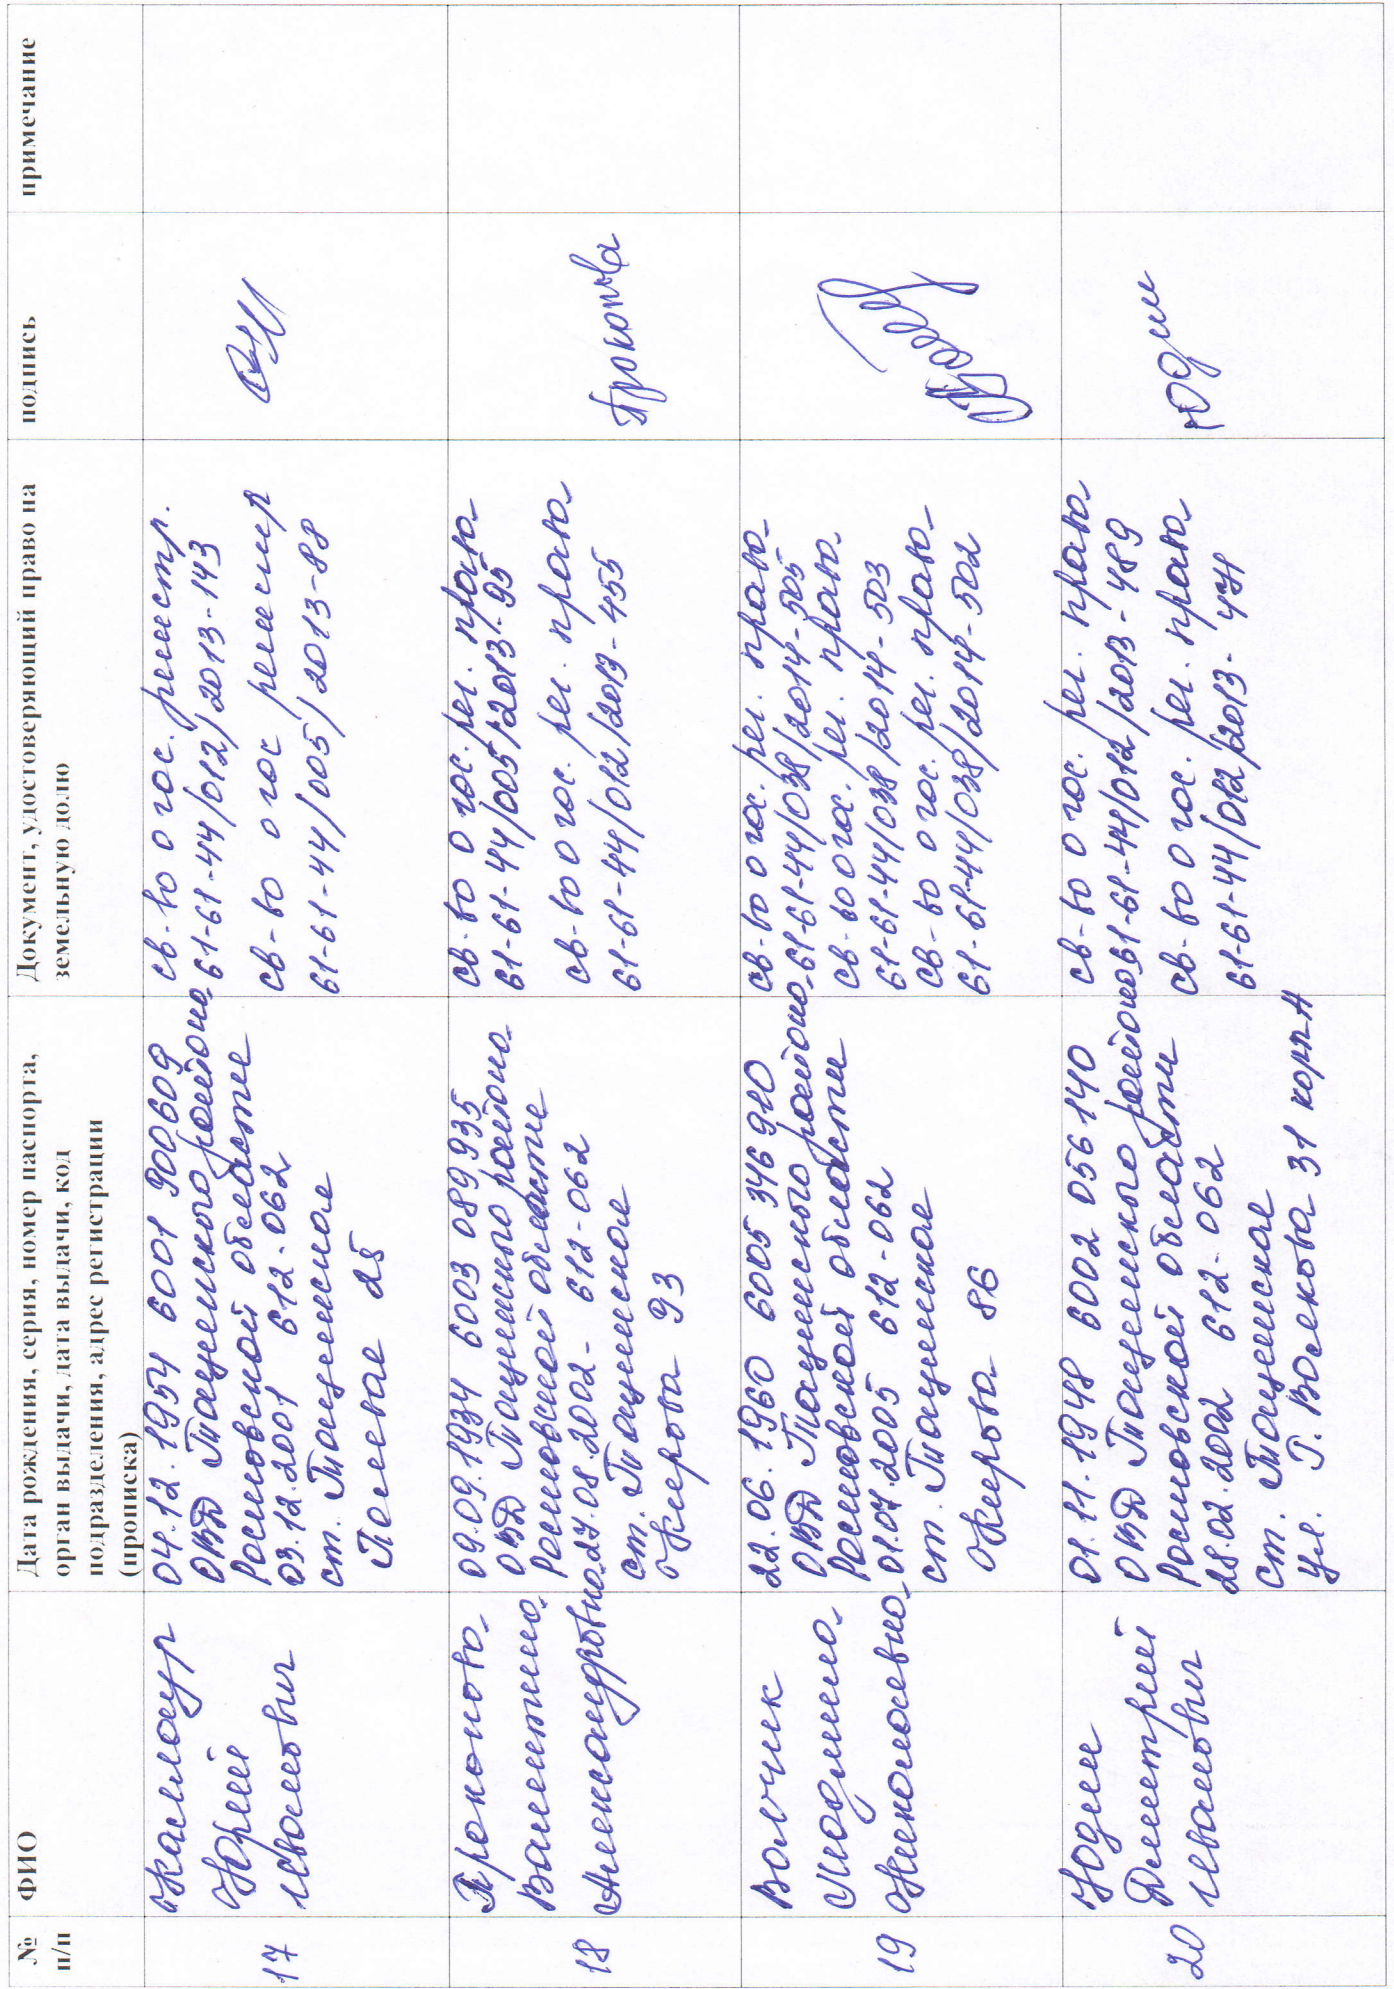 № п/п
ФИО
Дата рождения, серия, номер паспорта,
орган выдачи, дата выдачи, код
подразделения, адрес регистрации
(прописка)
Документ, удостоверяющий право на
земельную долю
подпись
примечание
17
Юрий
Иванович
04.12.1954 6001 900609
ОВД Тацинского района
Ростовской области
03.12.2001 612-062
ст. Тацинская
Полевая 25
св-во о гос. регистр.
61-61-44/012/2013-143
св-во о гос регистр
61-61-44/005/2013-88
18
Прокопова
Валентина
Александровна
09.09.1934 6003 089935
ОВД Тацинского района
Ростовской области
27.08.2002 612-062
ст. Тацинская
93
св-во о гос. рег. права
61-61-44/005/2013-95
св-во о гос. рег. права
61-61-44/012/2013-455
19
Волчик
Людмила
Николаевна
22.06.1960 6005 346910
ОВД Тацинского района
Ростовской области
01.07.2005 612-062
ст. Тацинская
86
св-во о гос. рег. права
61-61-44/038/2014-505
св-во о гос. рег. права
61-61-44/038/2014-503
св-во о гос. рег. права
61-61-44/038/2014-502
20
Юдин
Дмитрий
Иванович
01.11.1948 6002 056140
ОВД Тацинского района
Ростовской области
28.02.2002 612-062
ст. Тацинская
ул. 31 корп А
св-во о гос. рег. права
61-61-44/012/2013-489
св-во о гос. рег. права
61-61-44/012/2013-471